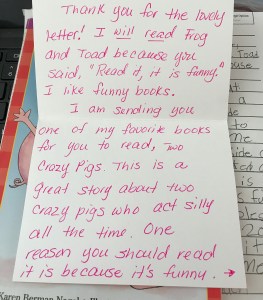 Thank you for the lovely
letter! I will read Frog
and Toad because you
said, "Read it, it is funny."
I like funny books.
I am sending you
one of my favorite books
for you to read, Two
Crazy Pigs. This is a
great story about two
crazy pigs who act silly
all the time. One
reason you should read
it is because it's funny. →
Karen Berman